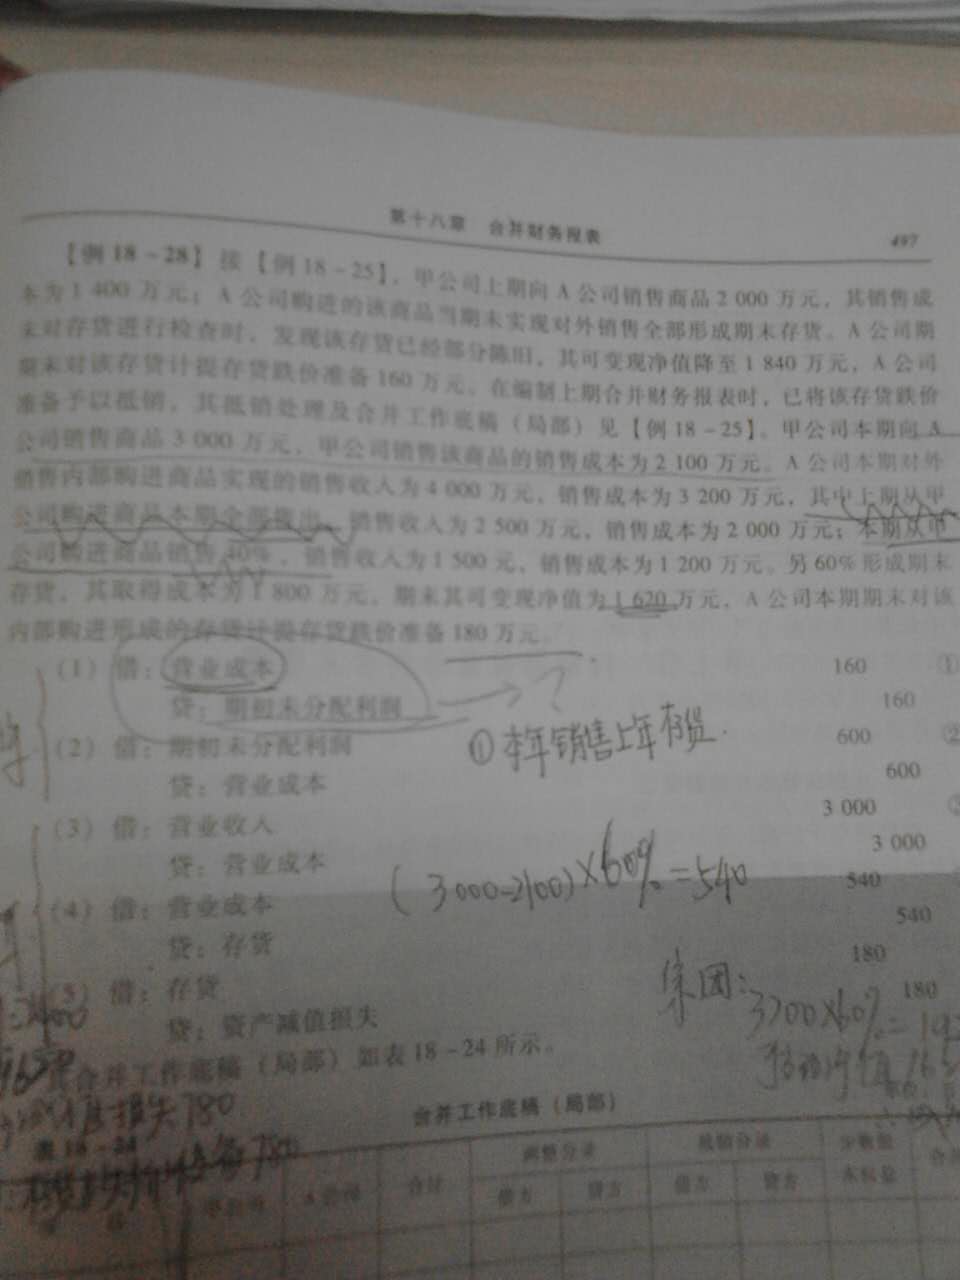 第十八章 合并财务报表 497
【例18-28】接【例18-25】，甲公司上期向A公司销售商品2 000万元，其销售成
本为1 400万元；A公司购进的该商品当期未实现对外销售全部形成期末存货。A公司期
末对存货进行检查时，发现该存货已经部分陈旧，其可变现净值降至1 840万元，A公司
期末对该存货计提存货跌价准备160万元。在编制上期合并财务报表时，已将该存货跌价
准备予以抵销，其抵销处理及合并工作底稿（局部）见【例18-25】。甲公司本期向A
公司销售商品3 000万元，甲公司销售该商品的销售成本为2 100万元。A公司本期对外
销售内部购进商品实现的销售收入为4 000万元，销售成本为3 200万元，其中上期从甲
公司购进商品本期全部售出，销售收入为2 500万元，销售成本为2 000万元；本期从甲
公司购进商品销售40%，销售收入为1 500元，销售成本为1 200万元。另60%形成期末
存货，其取得成本为1 800万元，期末其可变现净值为1 620万元，A公司本期期末对该
内部购进形成的存货计提存货跌价准备180万元。
(1) 借：营业成本 160 ①
贷：期初未分配利润 160
?
① 本年销售上年存货.
(2) 借：期初未分配利润 600 ②
贷：营业成本 600
(3) 借：营业收入 3 000
贷：营业成本 3 000
(3000-2100)×60%=540
(4) 借：营业成本 540
贷：存货 540
(5) 借：存货 180
贷：资产减值损失 180
集团：
合并工作底稿（局部）如表18-24所示。
合并工作底稿（局部）
表18-24
调整分录 抵销分录 少数股
东权益
甲公司 A公司 合计 借方 贷方 借方 贷方